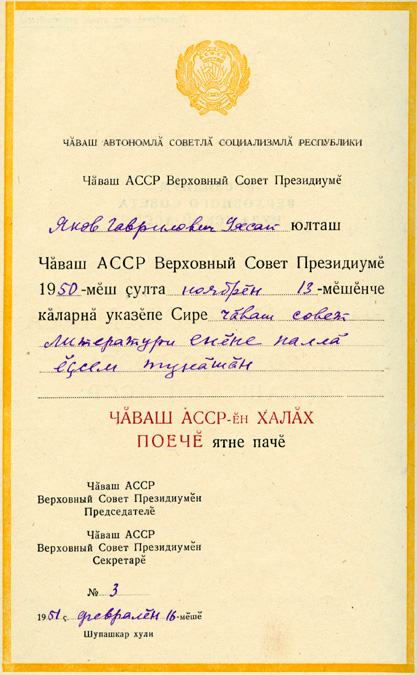 ЧӐВАШ АВТОНОМЛӐ СОВЕТЛӐ СОЦИАЛИЗМЛӐ РЕСПУБЛИКИ
Чӑваш АССР Верховный Совет Президиумӗ
Яков Гаврилович Ухсай юлташ
Чӑваш АССР Верховный Совет Президиумӗ
1950-мӗш ҫулта ноябрӗн 13-мӗшӗнче
кӑларнӑ указӗпе Сире чӑваш совет
литератури енӗпе паллӑ
ӗҫсем тунӑшӑн
ЧӐВАШ АССР-ӗн ХАЛӐХ
ПОЕЧӖ ятне пачӗ
Чӑваш АССР
Верховный Совет Президиумӗн
Председателӗ
Чӑваш АССР
Верховный Совет Президиумӗн
Секретарӗ
№ 3
1951 ҫ. февралӗн 16-мӗшӗ
Шупашкар хули